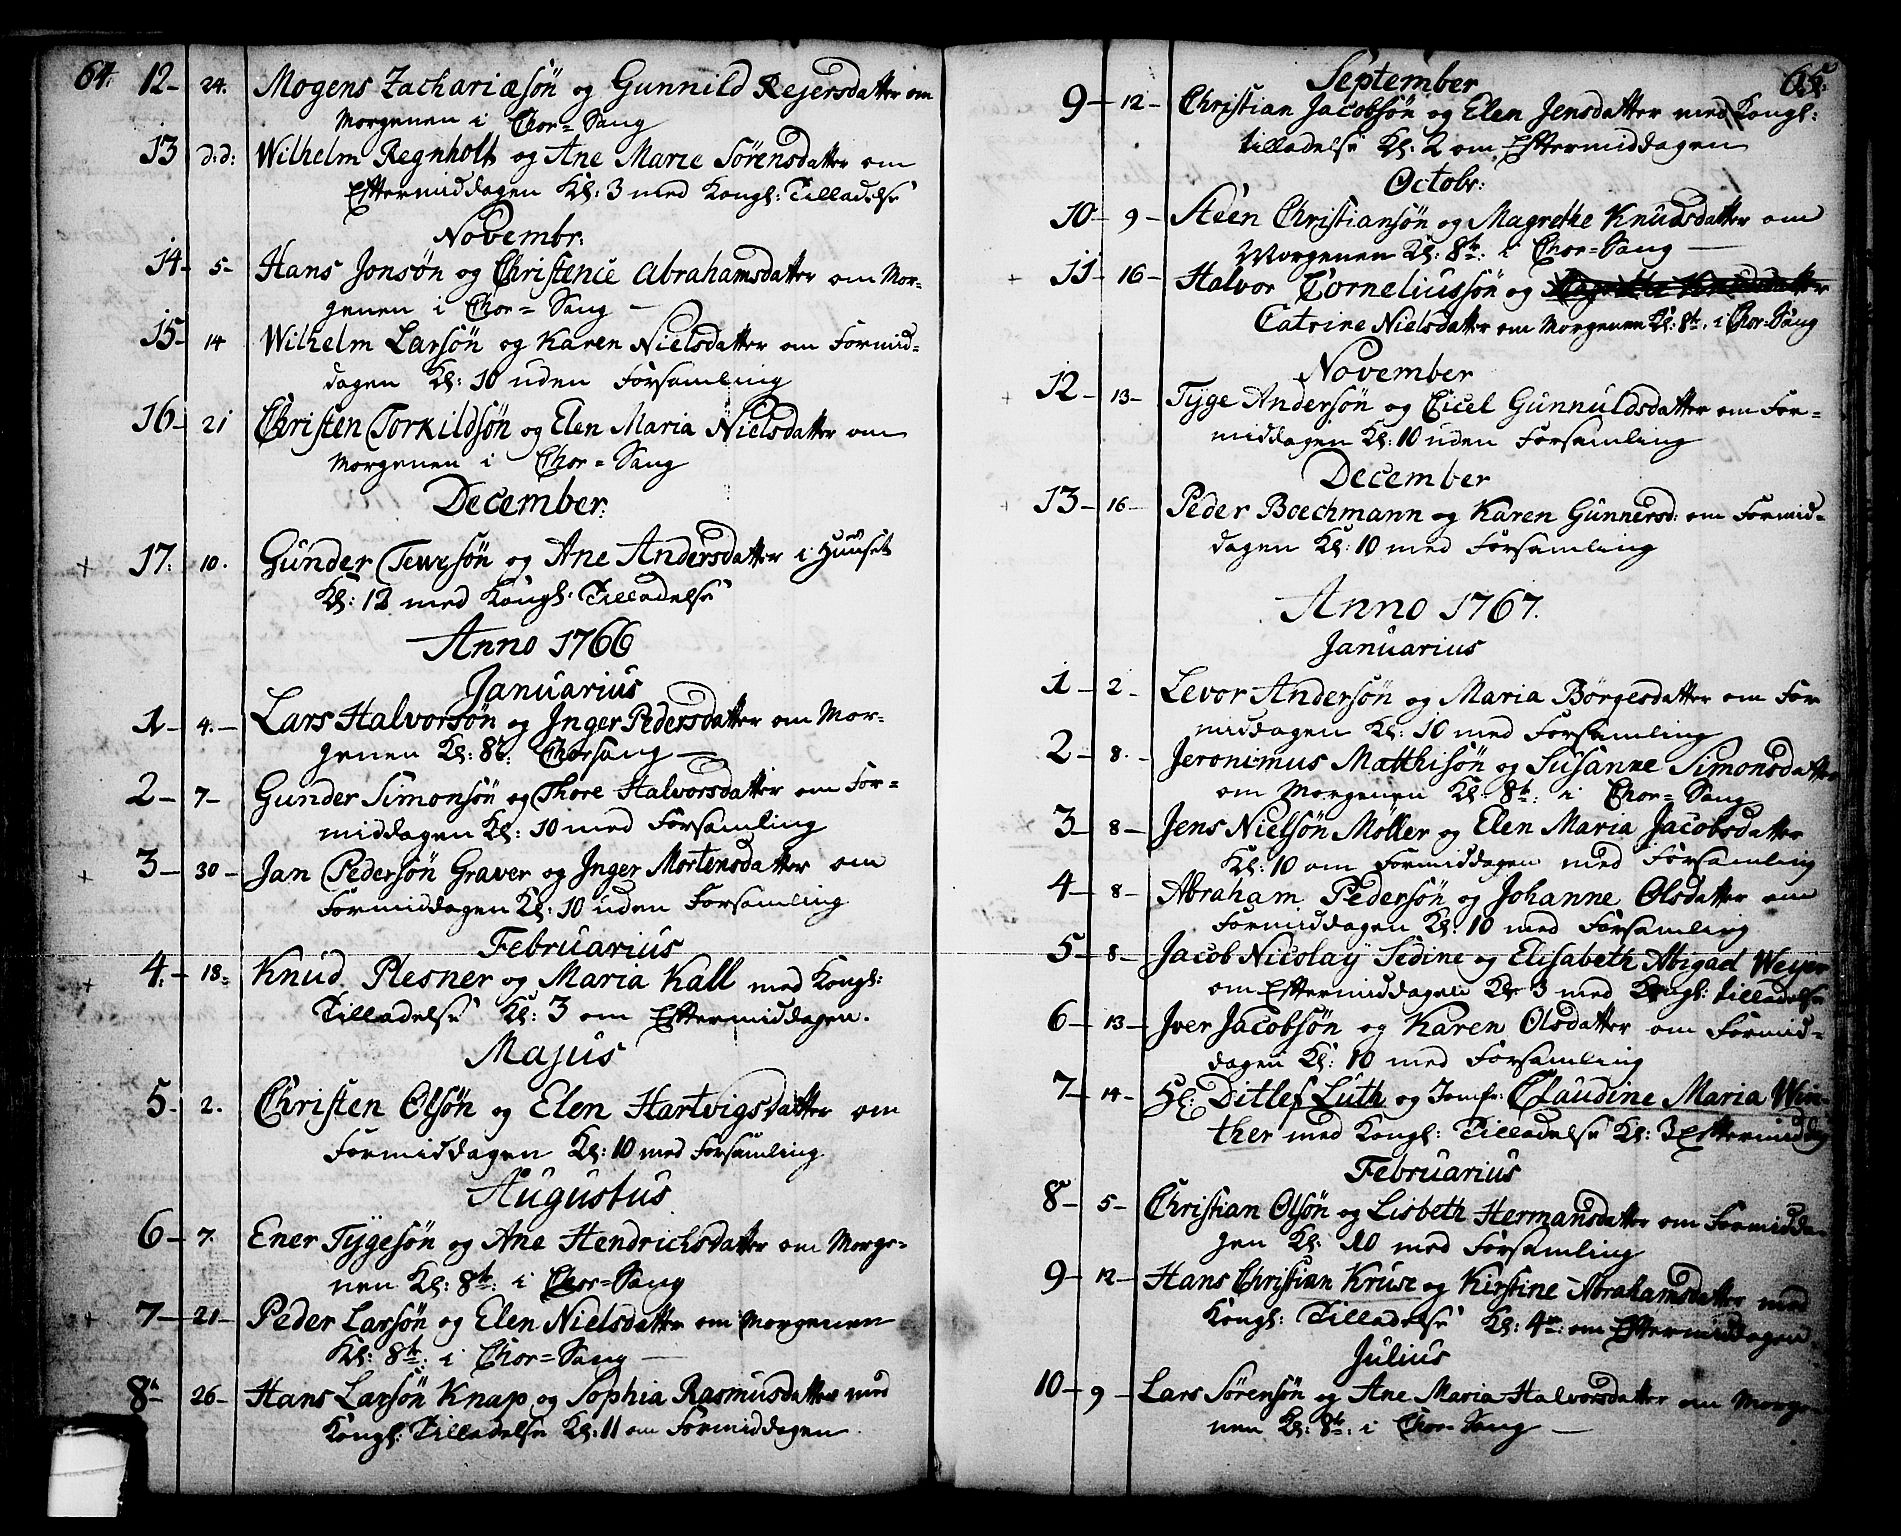 64.
12 24. Mogens Zachariæsøn og Gunnild Rejersdatter om
Morgenen i Chor=Sang
13 d:d: Wilhelm Regnholt og Ane Marie Sørensdatter om
Eftermiddagen Kl: 3 med Kongl: Tilladelse
Novembr:
14 5 Hans Jonsøn og Christence Abrahamsdatter om Mor-
genen i Chor=Sang
15 14 Wilhelm Larsøn og Karen Nielsdatter om Formid-
dagen Kl: 10 uden Forsamling
16 21 Christen Torkildsøn og Elen Maria Nielsdatter om
Morgenen i Chor=Sang
December
+ 17. 10. Gunder og Ane Andersdatter i Huuset
Kl: 12 med Kongl: Tilladelse
Anno 1766
Januarius
1 4. Lars Halvorsøn og Inger Pedersdatter om Mor-
genen Kl: 8te Chorsang
2 7 Gunder Simonsøn og Thore Halvorsdatter om For-
middagen Kl: 10 med Forsamling
+ 3 30 Jan Pedersøn Graver og Inger Mortensdatter om
Formiddagen Kl: 10 uden Forsamling
Februarius
+ 4. 18 Knud Plesner og Maria Kall med Kongl:
Tilladelse Kl: 3 om Eftermiddagen.
Majus
5 2. Christen Olsøn og Elen Hartvigsdatter om
Formiddagen Kl: 10 med Forsamling
Augustus
6 7. Ener Tÿgesøn og Ane Hendrichsdatter om Morge-
nen Kl: 8te: i Chor=Sang
+ 7 21 Peder Larsøn og Elen Nielsdatter om Morgenen
Kl: 8te: i Chor=Sang
8 26 Hans Larsøn Knap og Sophia Rasmusdatter med
Kongl: Tilladelse Kl: 11 om Formiddagen
65.
September
9 12 Christian Jacobsøn og Elen Jensdatter med Kongl:
tilladelse Kl: 2 om Eftermiddagen
Octobr:
10 9 Steen Christiansøn og Magrethe Knudsdatter om
Morgenen Kl: 8te: i Chor=Sang
+ 11 16 Halvor Corneliussøn og Magrethe Knudsdatter
Catrine Nielsdatter om Morgenen Kl: 8te: i Chor=Sang
November
+ 12 13 Tÿge Andersøn og Cicel Gunnuldsdatter om For-
middagen Kl: 10 uden Forsamling
December
+ 13 16 Peder Boechmann og Karen Gunnersd: om Formid-
dagen Kl: 10 med Forsamling
Anno 1767.
Januarius
1 2 Levor Andersøn og Maria Börgesdatter om For
middagen Kl: 10 med Forsamling
2 8. Jeronimus Matthisøn og Susanne Simonsdatter
om Morgenen Kl: 8te: i Chor=Sang
3 8 Jens Nielsøn Møller og Elen Maria Jacobsdatter
Kl: 10 om Formiddagen med Forsamling
4 8 Abraham Pedersøn og Johanne Olsdatter om
Formiddagen Kl: 10 med Forsamling
5 8 Jacob Nicolaÿ Sidine og Elisabeth Abigael Weÿer
om Eftermiddagen Kl 3 med Kongl: tilladelse
6 13 Iver Jacobsøn og Karen Olsdatter om Formid-
dagen Kl: 10 med Forsamling
7 14 Hr: Ditlef Luth og Jomfr: Claudine Maria Win-
ther med Kongl: Tilladelse Kl: 3 Eftermiddag
Februarius
8 5 Christian Olsøn og Lisbeth Hermansdatter om Formidda-
gen Kl: 10 med Forsamling
9 12 Hans Christian Kruse og Kirstine Abrahamsdatter med
Kongl: Tilladelse Kl: 4re: om Eftermiddagen
Julius
10 9 Lars Sørensøn og Ane Maria Halvorsdatter om Morge
nen Kl: 8te: i Chor=Sang